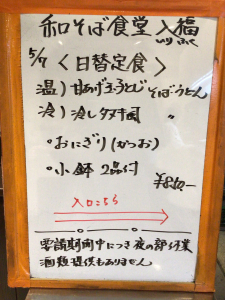 和そば食堂 入福
5/7 <日替定食>
温) 甘あげ玉うとじそば・うどん
冷) 冷し タヌキ 〃
・おにぎり(かつお)
・小鉢 2品付
¥810-
入口こちら
要請期間中につき 夜の部休業
酒類提供もありません